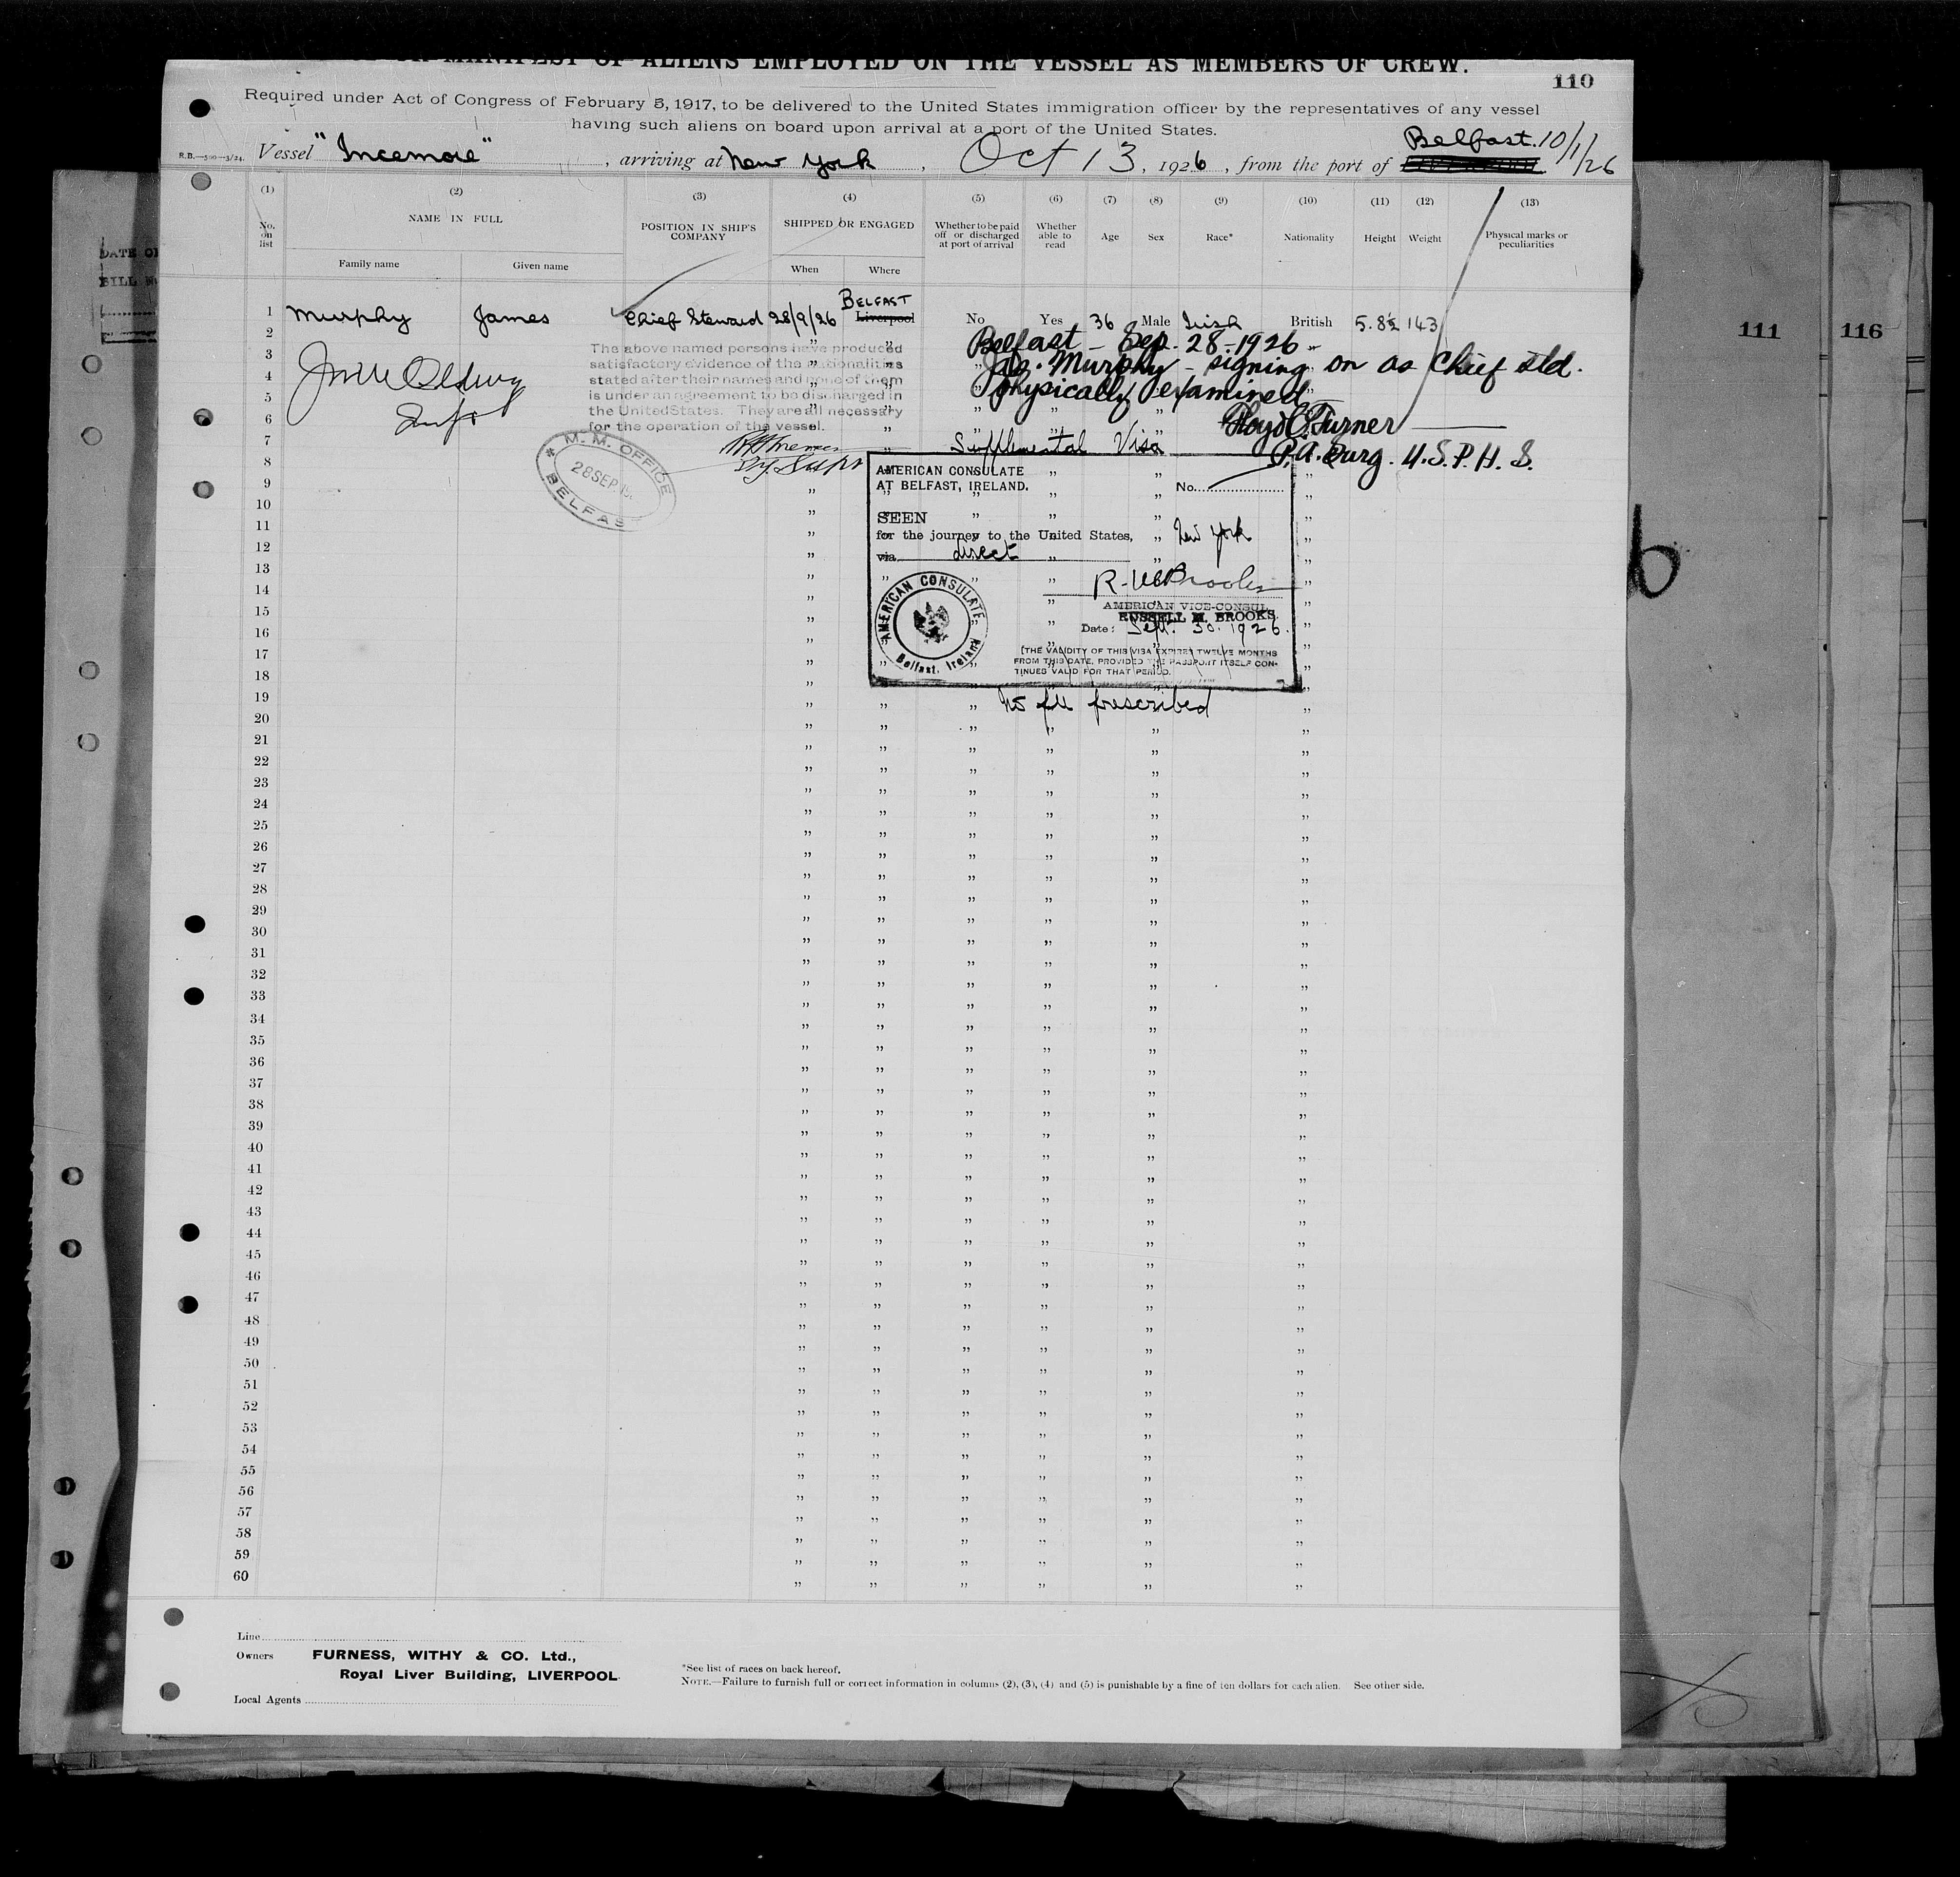 MANIFEST OF ALIENS EMPLOYED ON THE VESSEL AS MEMBERS OF CREW.
110
Required under Act of Congress of February 5, 1917, to be delivered to the United States immigration officer by the representatives of any vessel
having such aliens on board upon arrival at a port of the United States.
R.B.—500—3/24. Vessel "Incemore", arriving at New York, Oct 13, 1926, from the port of Belfast. 10/1/26
(1) (2) (3) (4) (5) (6) (7) (8) (9) (10) (11) (12) (13)
No. on list
NAME IN FULL
Family name Given name
POSITION IN SHIP'S COMPANY
SHIPPED OR ENGAGED
When Where
Whether to be paid off or discharged at port of arrival
Whether able to read
Age Sex Race* Nationality Height Weight
Physical marks or peculiarities
BELFAST
1 Murphy James Chief Steward 28/9/26 Liverpool No Yes 36 Male Irish British 5.8½ 143
2 Belfast - Sep. 28-1926
3 Jas. Murphy - signing on as Chief std.
4 physically examined
5
6 Floyd C. Turner
7 Supplemental Visa
P.A. Surg. U.S.P.H.S.
The above named persons have produced
satisfactory evidence of the nationalities
stated after their names and none of them
is under an agreement to be discharged in
the United States. They are all necessary
for the operation of the vessel.
Dy. Supt
M. M. OFFICE
28 SEP 19
BELFAST
AMERICAN CONSULATE
AT BELFAST, IRELAND.
No.
SEEN
for the journey to the United States, New York
via direct
AMERICAN CONSULATE.
Belfast, Ireland
R. M. Brooks
AMERICAN VICE-CONSUL
RUSSELL M. BROOKS
Date: Sept. 30. 1926.
(THE VALIDITY OF THIS VISA EXPIRES TWELVE MONTHS
FROM THIS DATE, PROVIDED THE PASSPORT ITSELF CON-
TINUES VALID FOR THAT PERIOD.
No fee prescribed
8
9
10
11
12
13
14
15
16
17
18
19
20
21
22
23
24
25
26
27
28
29
30
31
32
33
34
35
36
37
38
39
40
41
42
43
44
45
46
47
48
49
50
51
52
53
54
55
56
57
58
59
60
Line
Owners FURNESS, WITHY & CO. Ltd.,
Royal Liver Building, LIVERPOOL
Local Agents
*See list of races on back hereof.
NOTE.—Failure to furnish full or correct information in columns (2), (3), (4) and (5) is punishable by a fine of ten dollars for each alien. See other side.
111
116
DATE OF
BILL